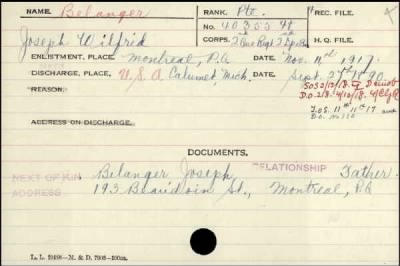 NAME. Belanger RANK. Pte. REC. FILE.
Joseph Wilfrid No. H.Q. FILE.
CORPS.
ENLISTMENT, PLACE. Montreal, P.Q. DATE. Nov. 11th 1917.
DISCHARGE, PLACE, U.S.A Calumet, Mich. DATE. Sept. 27th 1890.
REASON.
ADDRESS ON DISCHARGE.
DOCUMENTS.
NEXT OF KIN Belanger Joseph RELATIONSHIP Father.
ADDRESS 193 Beaudoin St., Montreal, P.Q.
L. L. 19498—M. & D. 7908—100m.